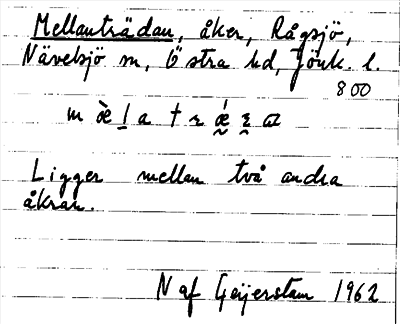 Mellanträdan, åker, Rågsjö,
Nävelsjö sn, Östra hd, Jönk. l.
800
Ligger mellan två andra
åkrar.
N af Geijerstam 1962